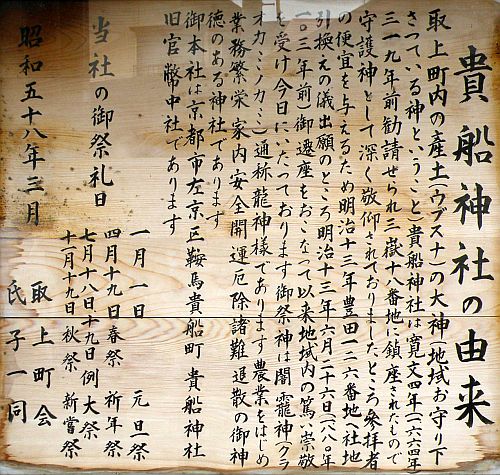 貴船神社の由来
取上町内の産土(ウブスナ)の大神(地域お守り下
さっている神ということ)貴船神社は寛文四年(一六六四年
三一九年前勧請せられ三嶽十八番地に鎮座されたもので
守護神として深く敬仰されておりましたところ参拝者
の便宜を与えるため明治十三年豊田一三六番地へ社地
引換えの儀出願のところ明治十三年六月二十六日(一八八〇年
一〇三年前)御遷座をおこなって以来地域内の篤い崇敬
を受け今日にいたっております御祭神は闇龗神(クラ
オカミノカミ)通称龍神様であります農業をはじめ
業務繁栄家内安全開運厄除諸難退散の御神
徳のある神社であります
御本社は京都市左京区鞍馬貴船町 貴船神社
旧官幣中社であります
当社の御祭礼日
一月一日 元旦祭
四月十九日春祭 祈年祭
七月十八日十九日例大祭
十月十九日秋祭 新嘗祭
昭和五十八年三月
取上町会
氏子一同